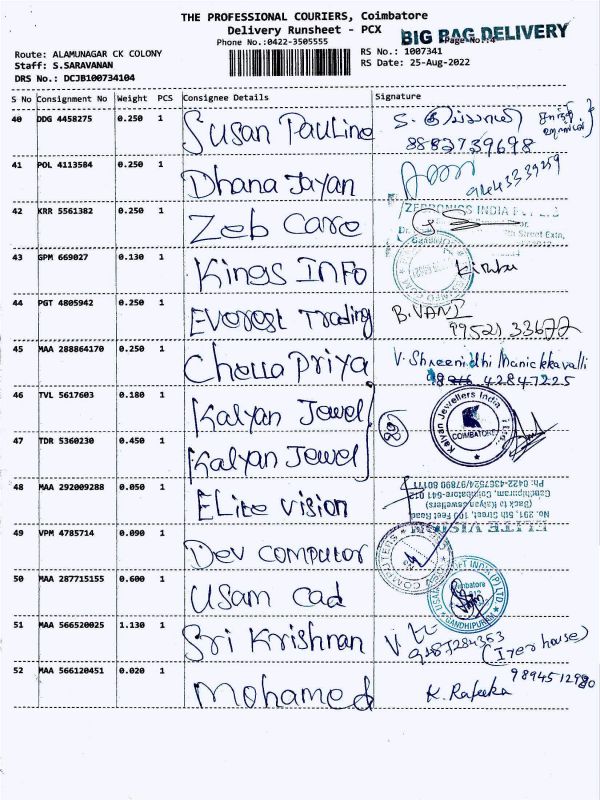 THE PROFESSIONAL COURIERS, Coimbatore
Delivery Runsheet - PCX
BIG BAG DELIVERY
Phone No.:0422-3505555
Page No.:4
Route: ALAMUNAGAR CK COLONY
RS No.: 1007341
Staff: S.SARAVANAN
RS Date: 25-Aug-2022
DRS No.: DCJB100734104
S No Consignment No Weight PCS Consignee Details Signature
40 DDG 4458275 0.250 1 Susan Pauline
8882739698
41 POL 4113584 0.250 1 Dhana Jayan
42 KRR 5561382 0.250 1 Zeb Care
ZEBRONICS INDIA PVT LTD
7th Street Extn,
43 GPM 669027 0.130 1 Kings INFO
44 PGT 4805942 0.250 1 Everest Trading B.VANI
45 MAA 288864170 0.250 1 Chella Priya V. Shreenidhi Manickkavalli
46 TVL 5617603 0.180 1 Kalyan Jewel
Kalyan Jewellers India Ltd.,
COIMBATORE
47 TDR 5360230 0.450 1 Kalyan Jewel
48 MAA 292009288 0.050 1 ELite vision
ELITE VISION
No. 291, 5th Street, 100 Feet Road
(Back to Kalyan Jewellers)
Gandhipuram, Coimbatore-641 012
49 VPM 4785714 0.090 1 Dev computer
COMPUTERS
50 MAA 287715155 0.600 1 Usam cad
GANDHIPURAM
51 MAA 566520025 1.130 1 Sri Krishnan
(Iyer house)
52 MAA 566120451 0.020 1 Mohamed K. Rafeeka
9894512980